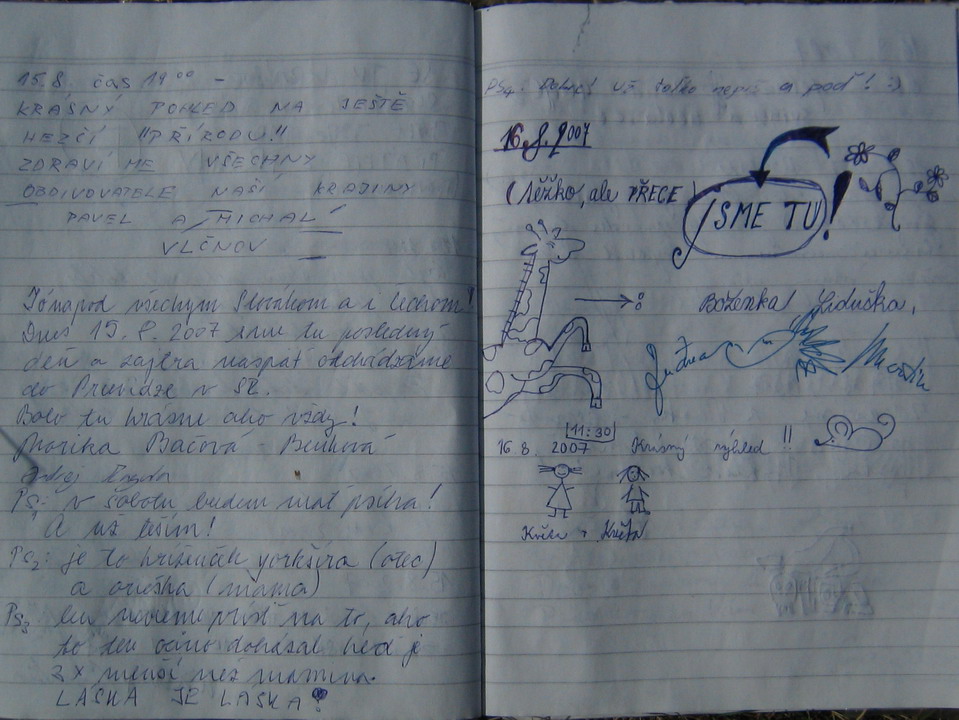 15.8. čas 19⁰⁰ -
KRASNÝ POHLED NA JEŠTĚ
HEZČÍ "PŘÍRODU"
ZDRAVÍ ME VŠECHNY
OBDIVOVATELE NAŠÍ KRAJINY
PAVEL A MICHAL
VLČNOV
všechym Slovákom a i Čechom!
Dnes 15.8.2007 sme tu posledný
deň a zajtra naspäť odchádzame
do Prievidze v SR.
Bolo tu krásne ako vždy!
Monika Bačová -
PS1: v sobotu budem mať psíka!
A už teším!
PS2: je to kríženec yorkšíra (otec)
a orieška (mama)
PS3: len nevieme prísť na to, ako
to ten ocino dokázal keď je
2x menší než mamina.
LÁSKA JE LÁSKA!
PS4: Dobre už toľko nepíš a poď! :)
16.8.2007
(těžko, ale PŘECE)
JSME TU!
Boženka, Liduška,
Martin
16 8. 2007 11:30 Krásný výhled !!
Květa